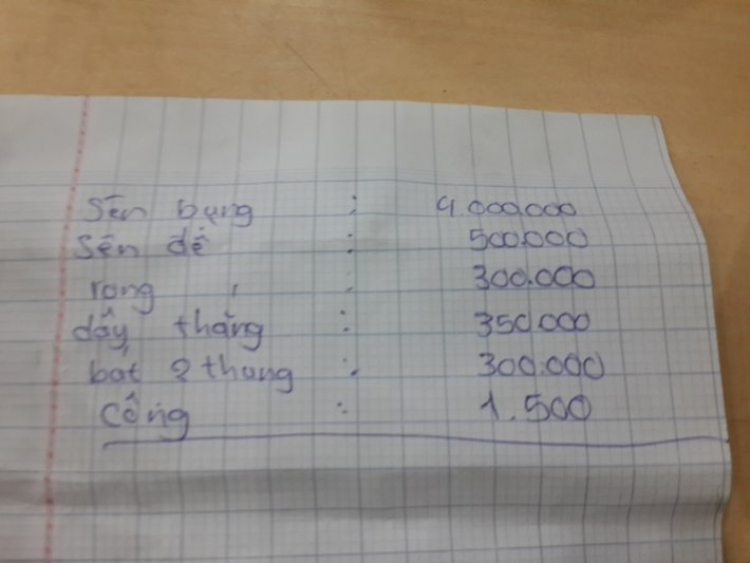 Sên bụng : 4.000.000
Sên đề : 500.000
rong : 300.000
dây thắng : 350.000
bát 2 thung : 300.000
Công : 1.500